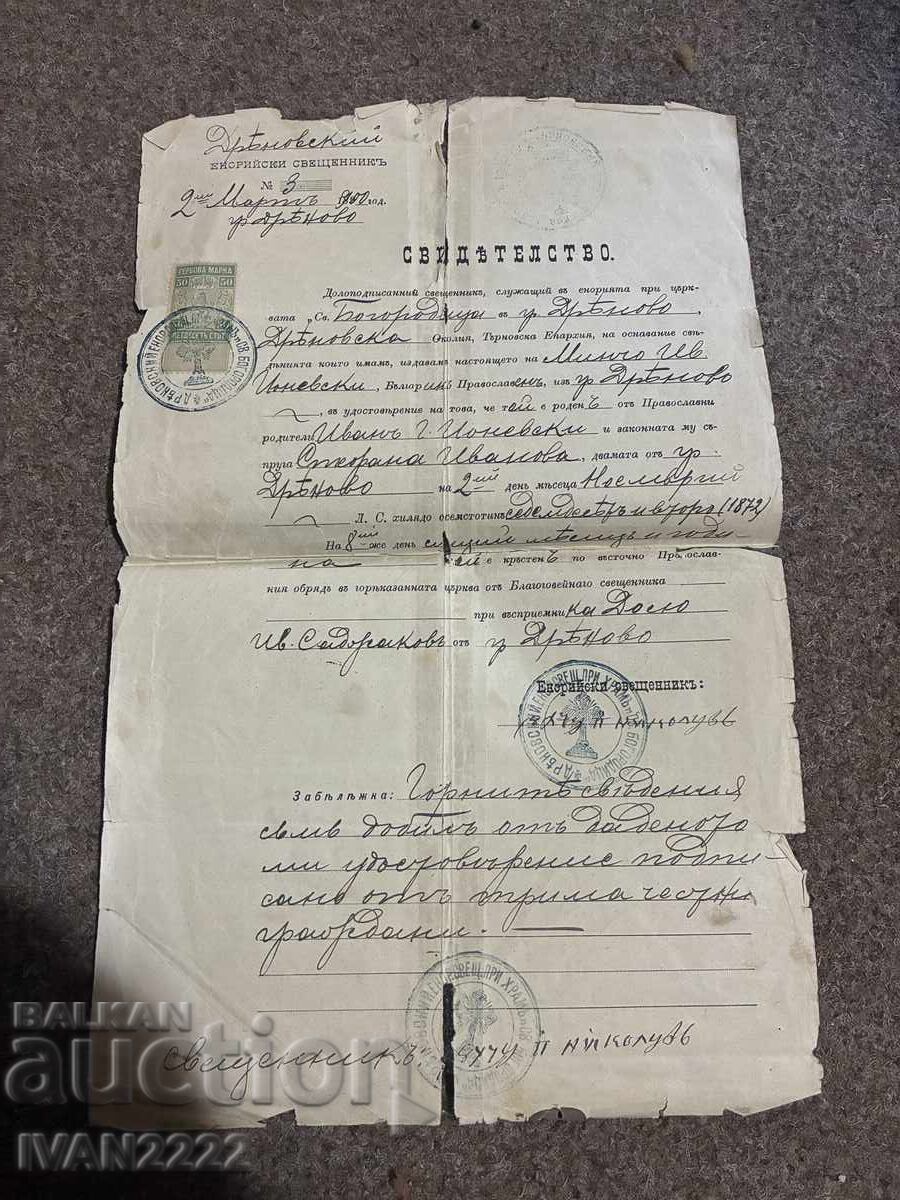 Дрѣновский
ЕНОРИЙСКИ СВЕЩЕННИКЪ
№ 3
2ий Мартъ 1900 год.
гр. Дрѣново
СВИДѢТЕЛСТВО.
ГЕРБОВА МАРКА
50 50
Долоподписанний свещенникъ, служащий въ енорията при църк-
вата „Св. Богородица въ гр. Дрѣново,
Дрѣновска Околия, Търновска Епархия, на основание свѣ-
дѣнията които имамъ, издавамъ настоящето на Минчо Ив.
Ионевски, Българинъ Православенъ, изъ гр. Дрѣново
въ удостовѣрение на това, че той е роденъ отъ Православни
родители Иванъ Г. Ионевски и законната му съ-
пруга Иванова, двамата отъ гр.
Дрѣново на 2ий день мѣсеца Ноемврий
Л. С. хилядо осемстотинъ седемдесеть и втора (1872)
На 8ий же день сѫщий мѣсецъ и годи-
на той е кръстенъ по въсточно Православ-
ния обрядъ въ горѣказанната църква отъ Благоговейнаго свещенника
при въсприемника Досю
Ив. отъ гр. Дрѣново
Енорийски свещенникъ:
п николувъ
Забѣлѣжка: Горнитѣ сведения
съмъ добилъ отъ даденото
ми удостовѣрение подпи-
сано отъ трима честни
граждани.
свещенникъ: п николувъ
BALKAN
auction
IVAN2222